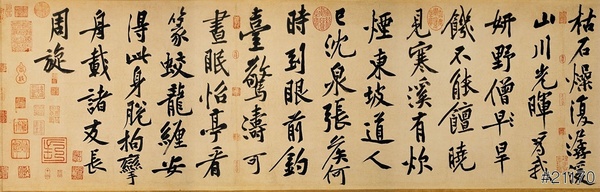 枯石燥復潺湲
山川光暉為我
妍野僧早旱
饑不能饘曉
見寒溪有炊
煙東坡道人
已沈泉張侯何
時到眼前釣
臺驚濤可
晝眠怡亭看
篆蛟龍纏安
得此身脫拘攣
舟載諸友長
周旋
#21170